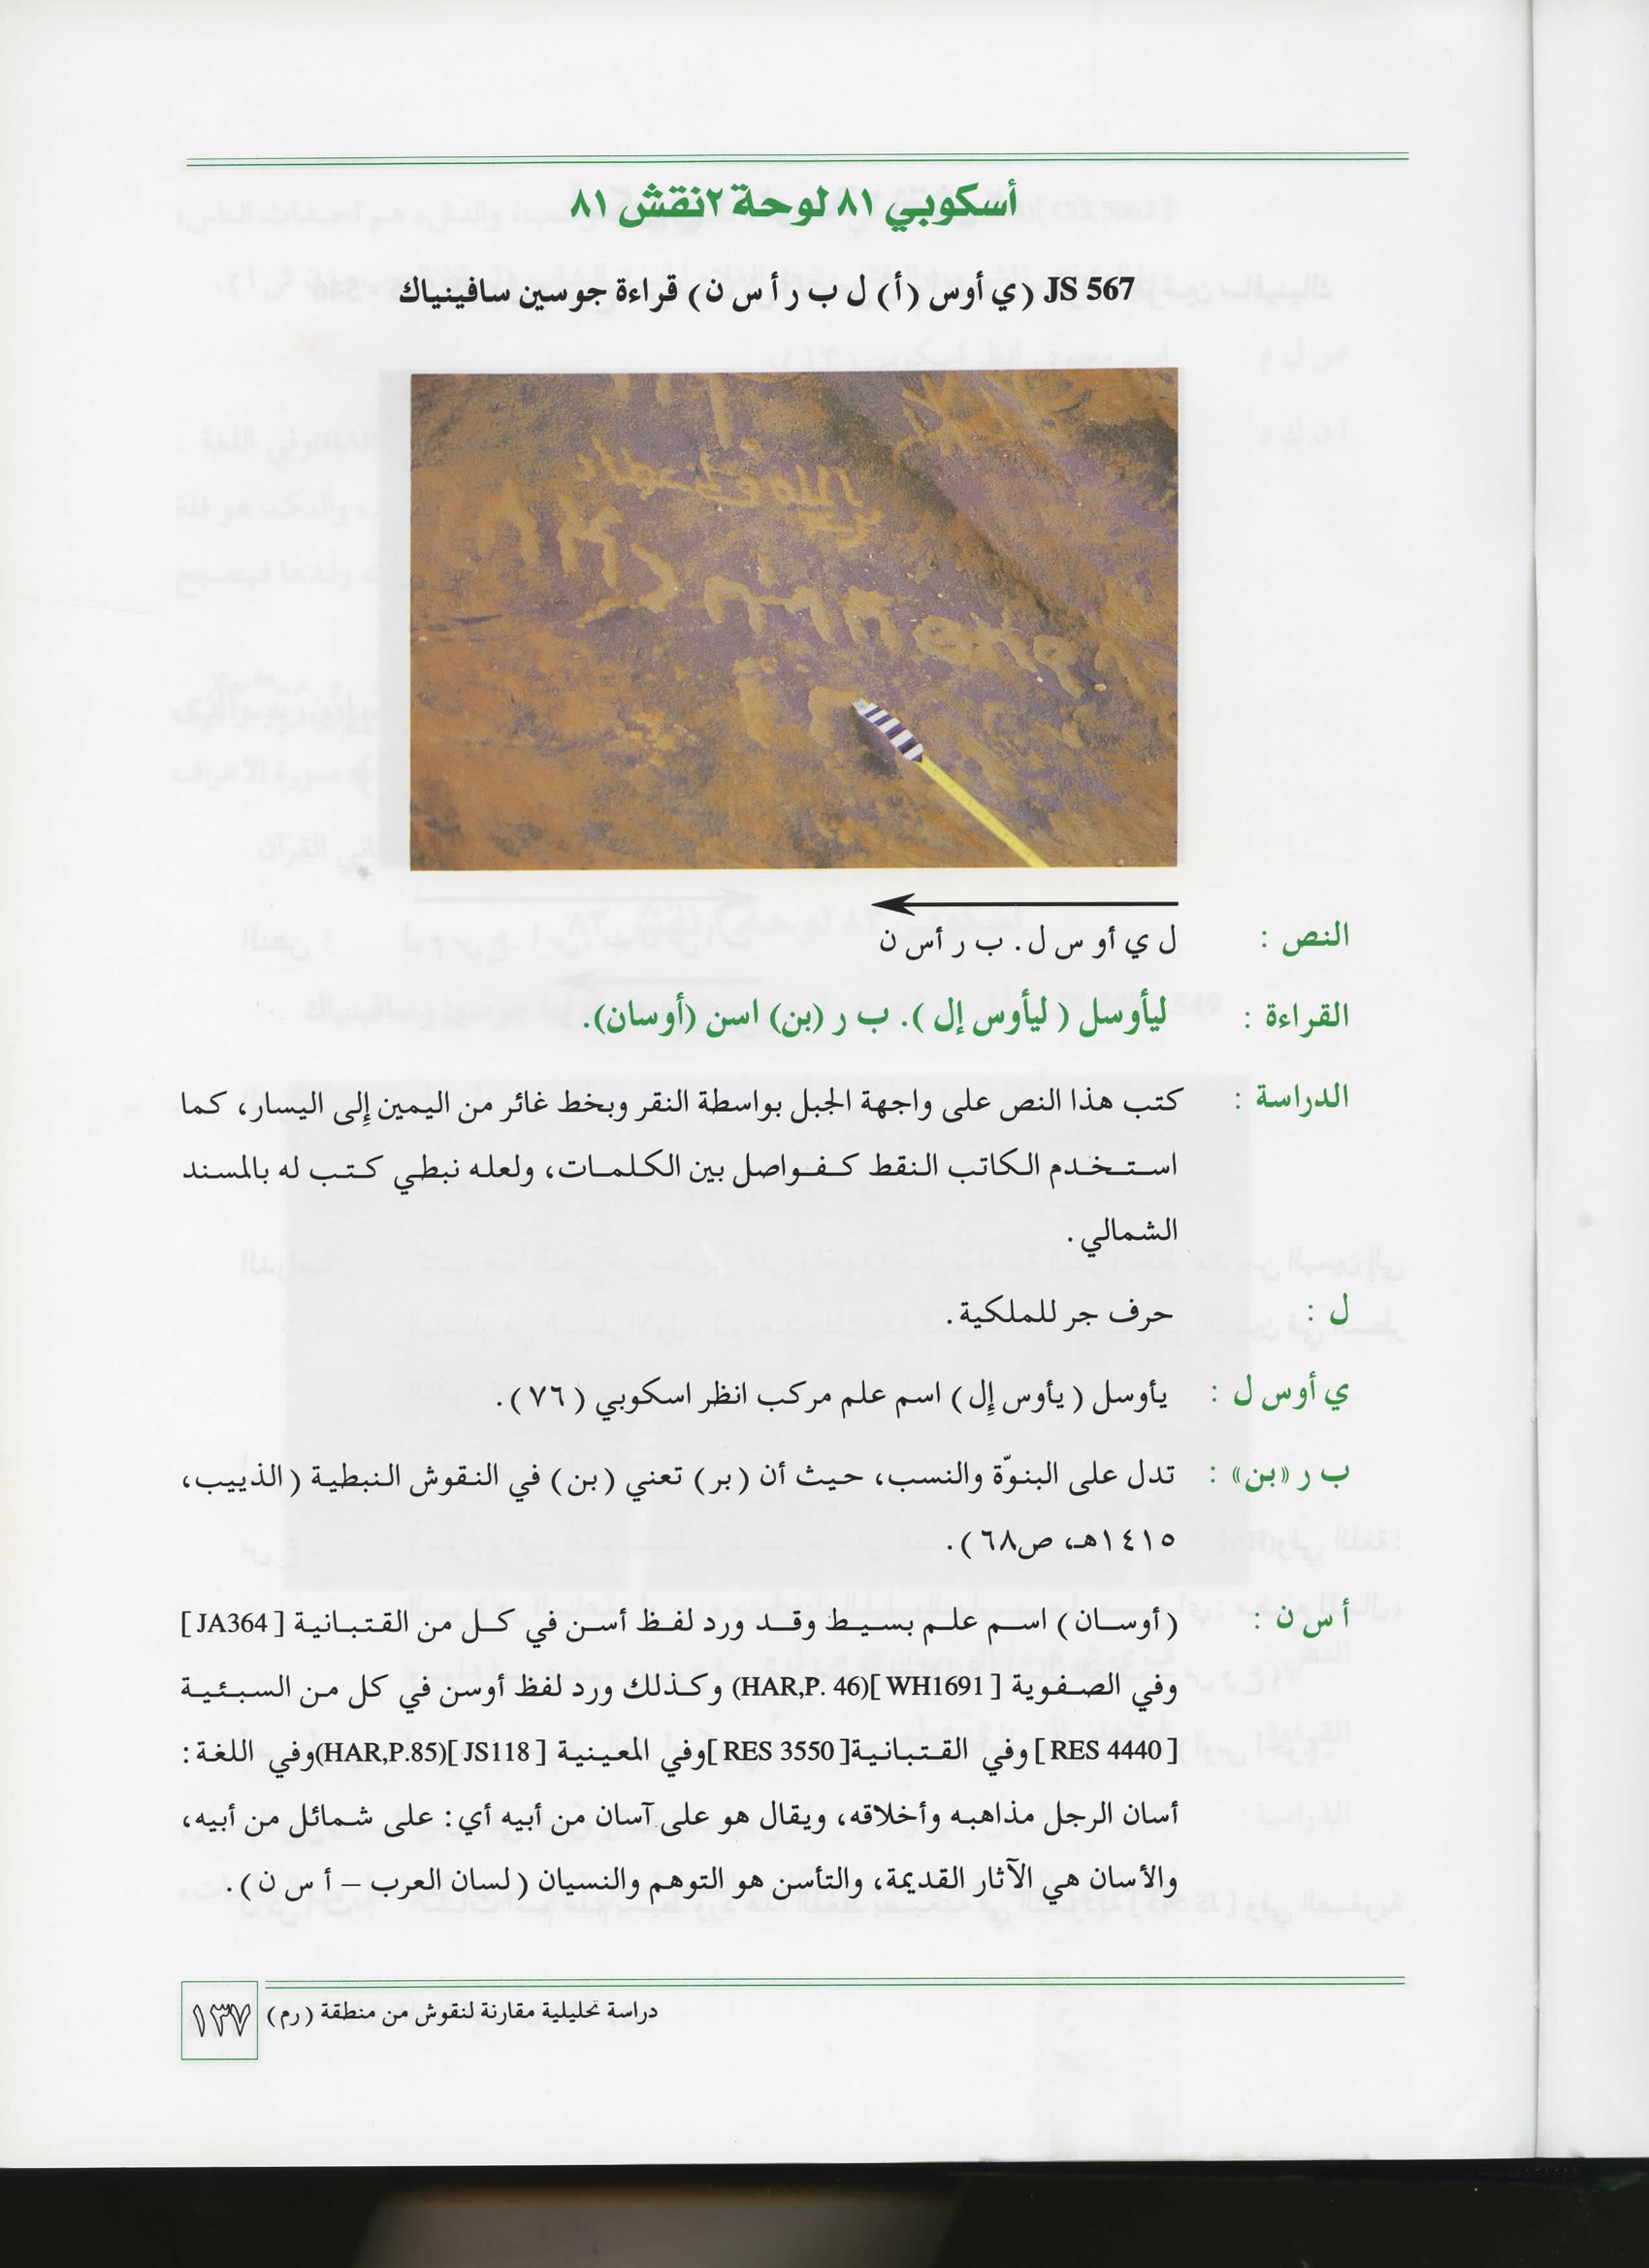 أسكوبي ٨١ لوحة ٢نقش ٨١
JS 567 (ي أوس (أ) ل ب ر أ س ن) قراءة جوسين سافينياك
النص : ل ي أو س ل . ب ر أس ن
القراءة : ليأوسل ( ليأوس إل ). ب ر (بن) اسن (أوسان).
الدراسة : كتب هذا النص على واجهة الجبل بواسطة النقر وبخط غائر من اليمين إلى اليسار، كما
استخدم الكاتب النقط كفواصل بين الكلمات، ولعله نبطي كتب له بالمسند
الشمالي .
ل : حرف جر للملكية .
ي أوس ل : يأوسل ( يأوس إل) اسم علم مركب انظر اسكوبي ( ٧٦ ) .
ب ر «بن» : تدل على البنوّة والنسب، حيث أن (بر) تعني (بن) في النقوش النبطية ( الذييب،
١٤١٥هـ، ص٦٨ ) .
أ س ن : ( أوسان ) اسم علم بسيط وقد ورد لفظ أسن في كل من القتبانية [ JA364 ]
وفي الصفوية [ WH1691 ](HAR,P. 46) وكذلك ورد لفظ أوسن في كل من السبئية
[ RES 4440 ] وفي القتبانية[ RES 3550 ]وفي المعينية [ JS118 ](HAR,P.85)وفي اللغة :
أسان الرجل مذاهبه وأخلاقه، ويقال هو على آسان من أبيه أي : على شمائل من أبيه،
والأسان هي الآثار القديمة، والتأسن هو التوهم والنسيان ( لسان العرب – أ س ن ) .
دراسة تحليلية مقارنة لنقوش من منطقة ( رم ) ١٣٧